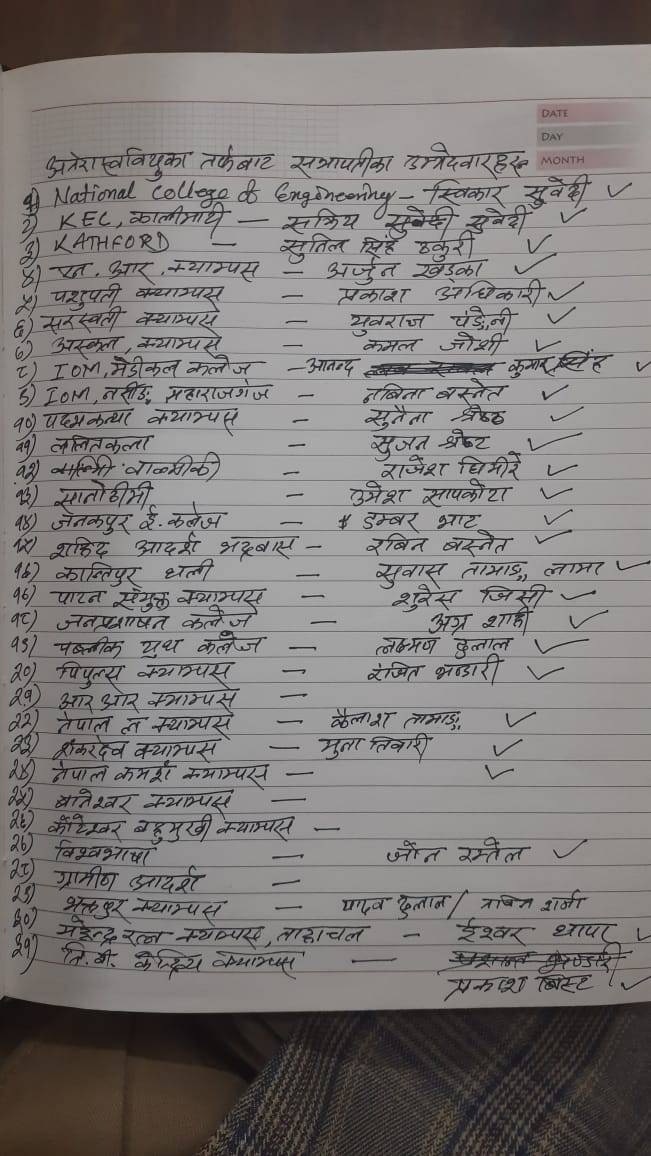 DATE
DAY
MONTH
अनेरास्ववियुका तर्फबाट सभापतीका उम्मेदवारहरू
१) National College of Engineering - स्विकार सुवेदी ✓
२) KEC, कालीमाटी - सक्रिय सुवेदी सुवेदी ✓
३) KATHFORD - सुनिल सिंह ठकुरी ✓
४) एन. आर. क्याम्पस - अर्जुन खड्का ✓
५) पशुपती क्याम्पस - प्रकाश अधिकारी ✓
६) सरस्वती क्याम्पस - युवराज पंडेनी ✓
७) अस्कल, क्याम्पस - कमल जोशी ✓
८) IOM, मेडीकल कलेज - आनन्द कुमार सिंह ✓
९) IOM, नर्सीङ, महाराजगंज - नबिना बस्नेत ✓
१०) पद्मकन्या क्याम्पस - सुनैना श्रेष्ठ ✓
११) ललितकला - सुजन श्रेष्ट ✓
१२) वाल्मीकी - राजेश घिमीरे ✓
१३) सानोठीमी - उमेश सापकोटा ✓
१४) जनकपुर ई. कलेज - डम्बर भाट ✓
१५) शहिद आदर्श भद्रबास - रबिन बस्नेत ✓
१६) कान्तिपुर धली - सुवास तामाङ, लामा ✓
१७) पाटन संयुक्त क्याम्पस - शुरेस जिसी ✓
१८) जनप्रशाषन कलेज - अग्र शाही ✓
१९) पब्लीक युथ कलेज - लक्ष्मण दुलाल ✓
२०) पिपुल्स क्याम्पस - रंजित भण्डारी ✓
२१) आर आर क्याम्पस -
२२) नेपाल ल क्याम्पस - कैलाश तामाङ ✓
२३) शंकरदेव क्याम्पस - मुना तिवारी ✓
२४) नेपाल कमर्श क्याम्पस - ✓
२५) बानेश्वर क्याम्पस -
२६) कोटेश्वर बहुमुखी क्याम्पस -
२७) विश्वभाषा - जौन रम्तेल ✓
२८) ग्रामीण आदर्श -
२९) भक्तपुर क्याम्पस - यादव दुलाल / नबिन शर्मा
३०) महेन्द्र रत्न क्याम्पस, ताहाचल - ईश्वर थापा ✓
३१) त्रि. वी. केन्द्रिय क्याम्पस -
प्रकाश बिस्ट ✓